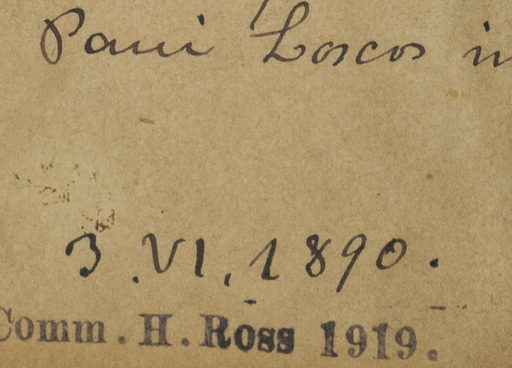 Paui Loscos in
3.VI.1890.
Comm. H. Ross 1919.